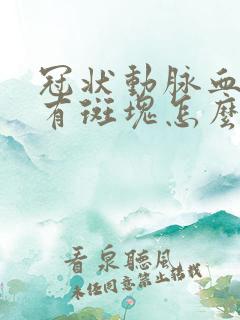 冠状動脉血
有斑塊怎麼
看泉聽風
未任同意禁止轉載